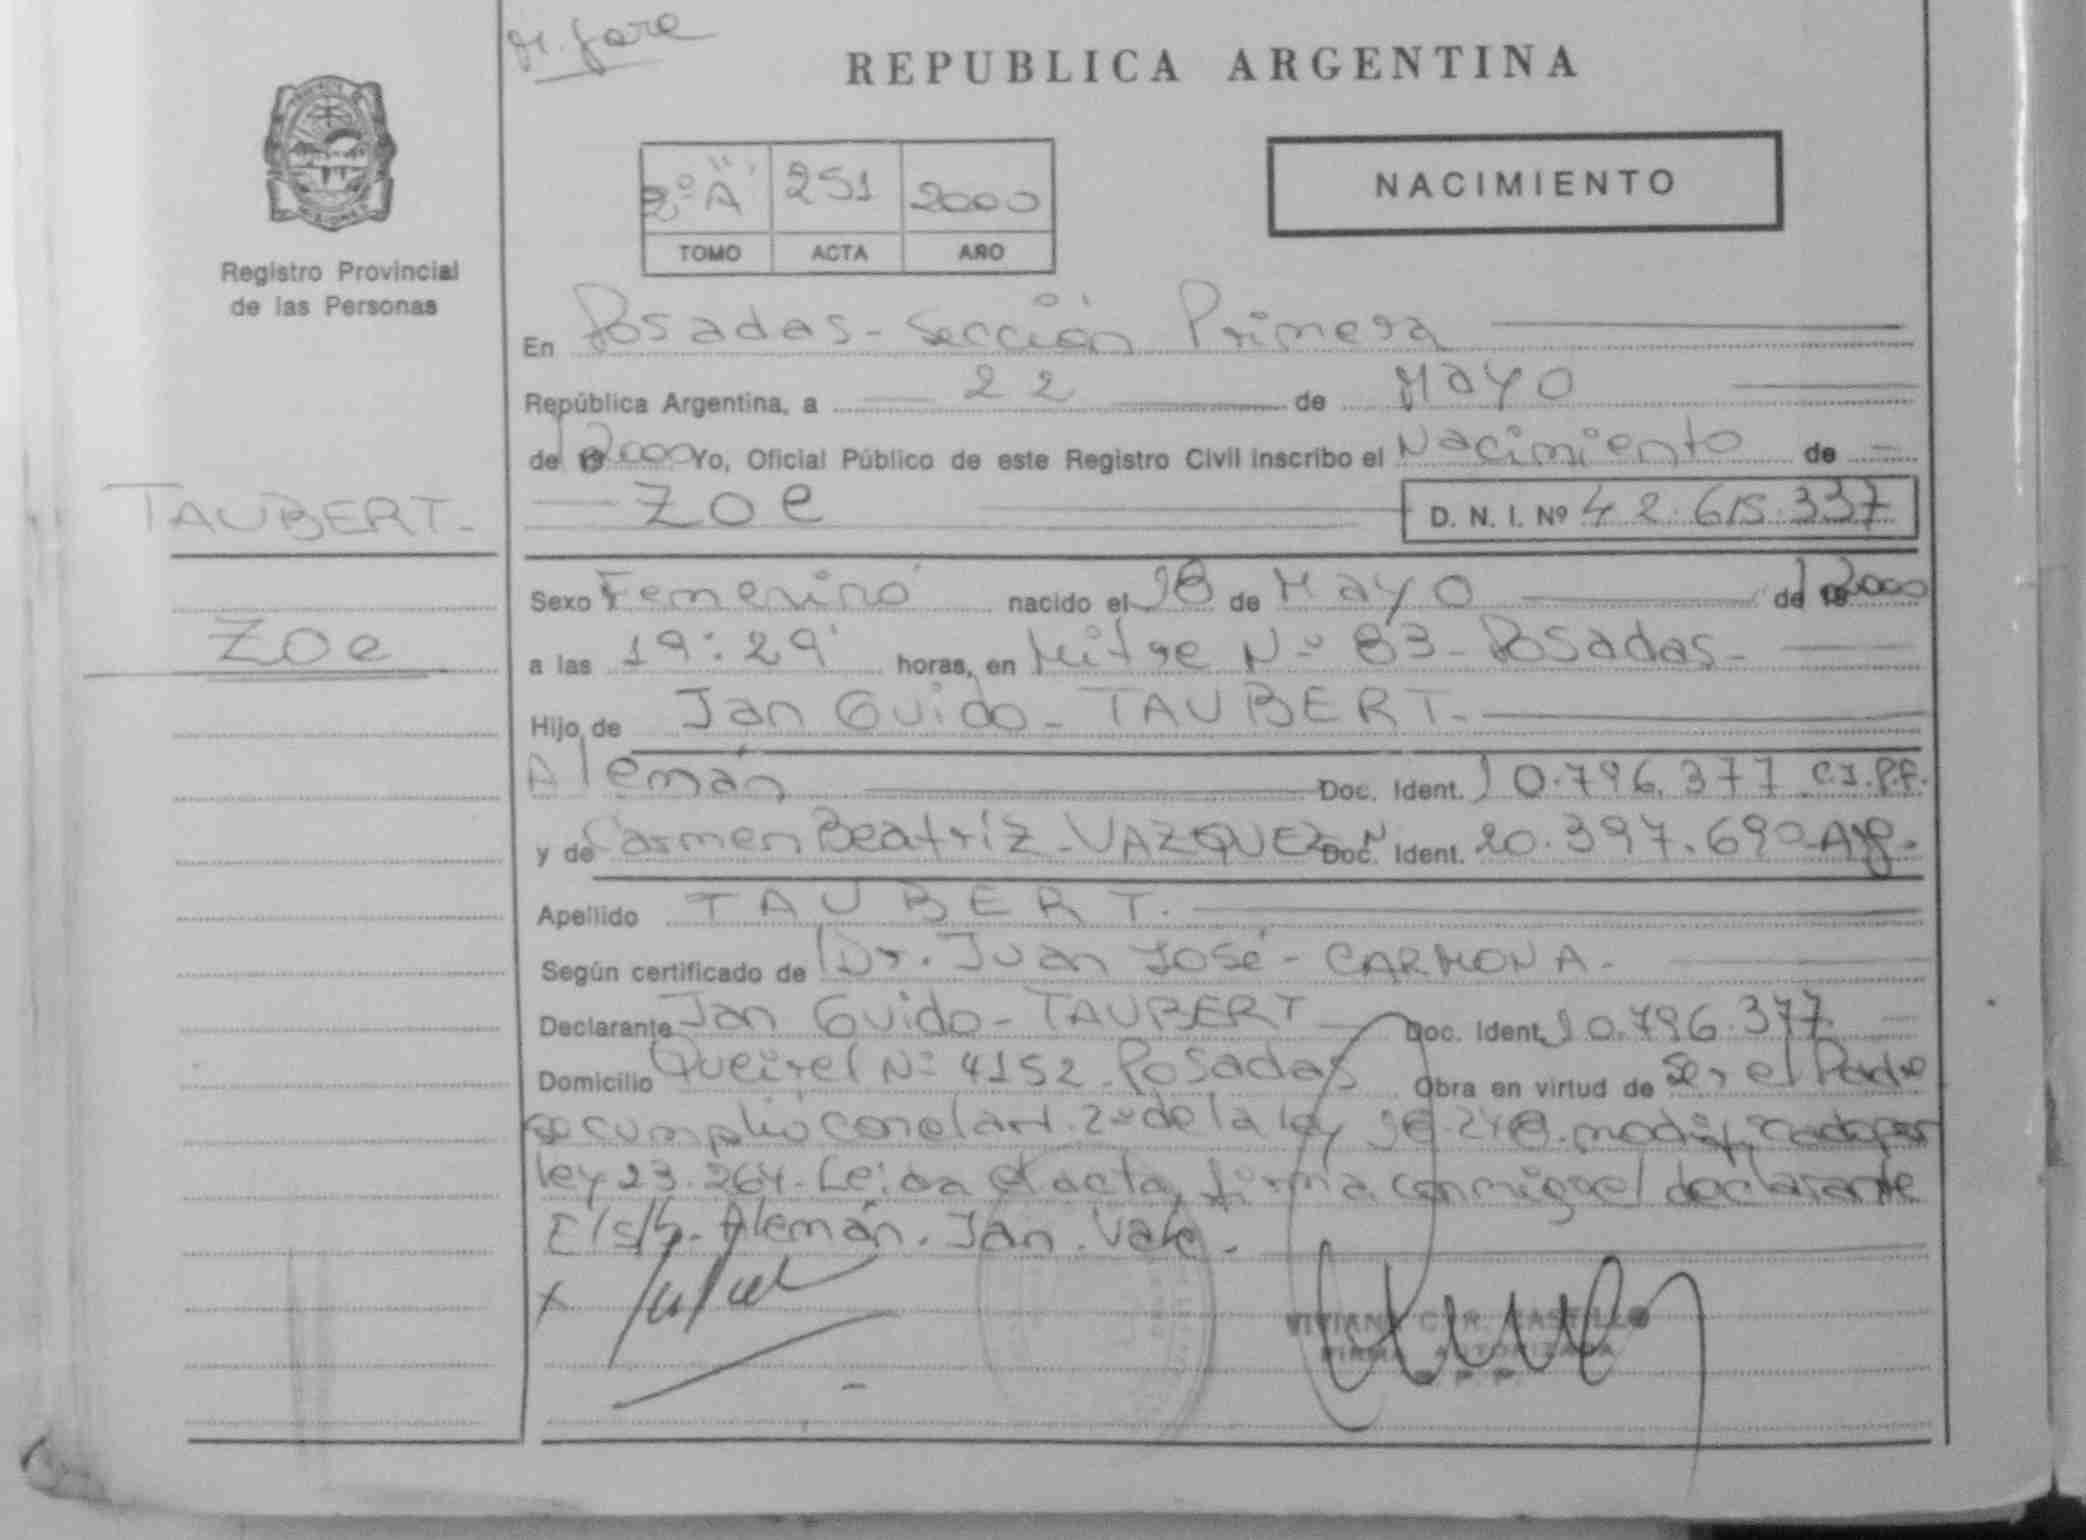 REPUBLICA ARGENTINA
2º "A" 251 2000
TOMO ACTA AÑO
NACIMIENTO
Registro Provincial
de las Personas
En Posadas - Sección Primera
República Argentina, a 22 de Mayo
de 2000 Yo, Oficial Público de este Registro Civil inscribo el Nacimiento de
Zoe D. N. I. Nº 42.615.337
TAUBERT.-
Zoe
Sexo Femenino nacido el 18 de Mayo de 2000
a las 19:29 horas, en Mitre Nº 83 - Posadas -
Hijo de Jan Guido - TAUBERT.-
Alemán Doc. Ident. 10.796.377 C.I.P.F.
y de Carmen Beatriz - VAZQUEZ Doc. Ident. 20.397.690 Arg.
Apellido TAUBERT.
Según certificado de Dr. Juan José - CARMONA.-
Declarante Jan Guido - TAUBERT Doc. Ident. 10.796.377
Domicilio Queirel Nº 4152 - Posadas Obra en virtud de Ser el Padre
se cumplió con el art. 2º de la ley 18.248. modificado por
ley 23.264. Leida el acta, firma conmigo el declarante
E/s/b. Alemán. Jan. Vale.-
x
CASTILLO
FIRMA AUTORIZADA